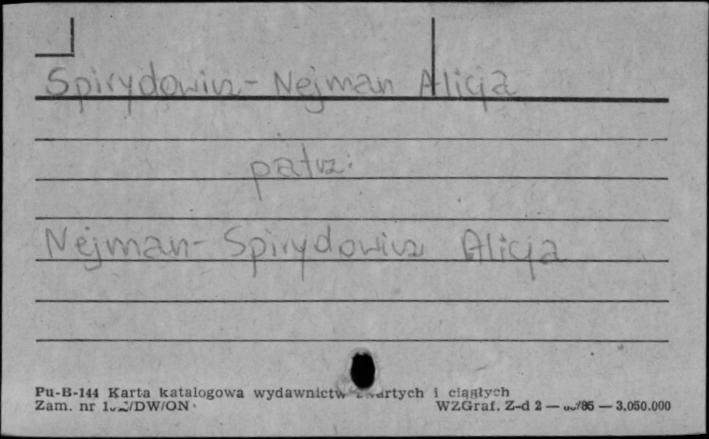 Spirydowicz - Nejman Alicja
patrz:
Nejman - Spirydowicz Alicja
Pu-B-144 Karta katalogowa wydawnictw zwartych i ciągłych
Zam. nr /DW/ON WZGraf. Z-d 2 — /85 — 3.050.000